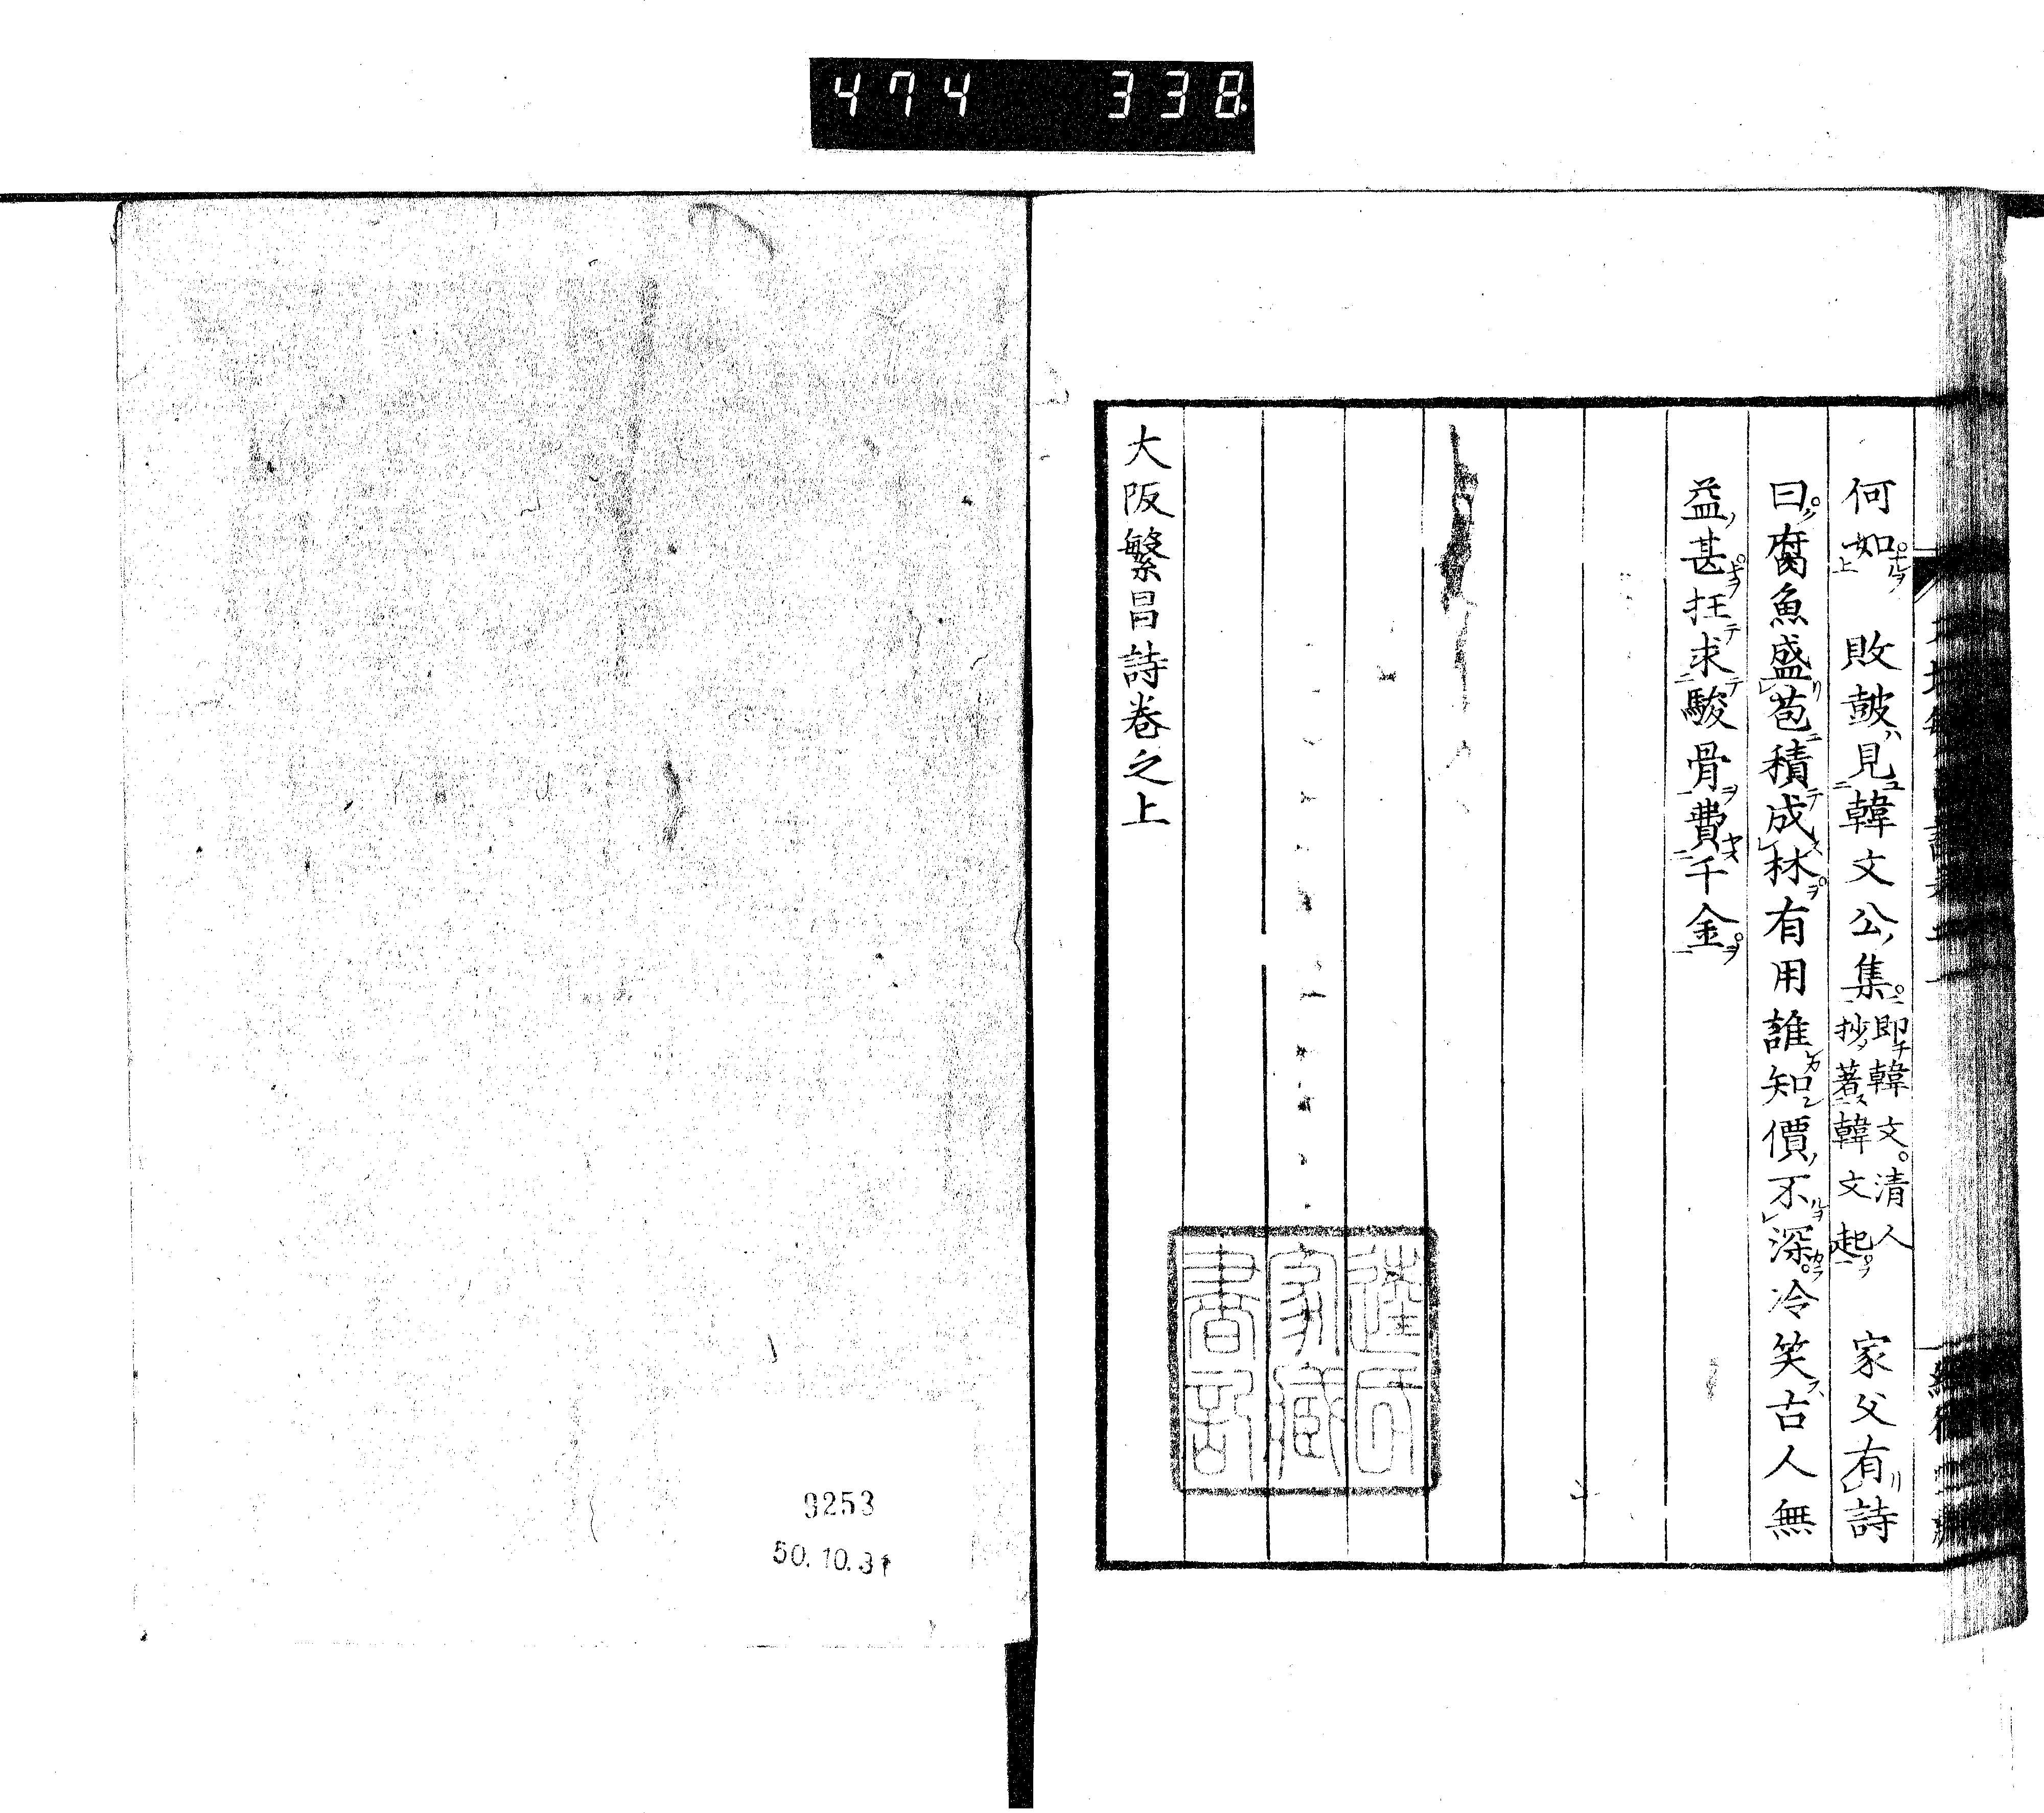 474 338
何如 敗皷見韓文公集 即韓文。清人抄著韓文起 家父有詩
曰腐魚盛苞積成林有用誰知價不深冷笑古人無
益甚抂求駿骨費千金
大阪繁昌詩卷之上
家藏
書記
9253
50.10.31